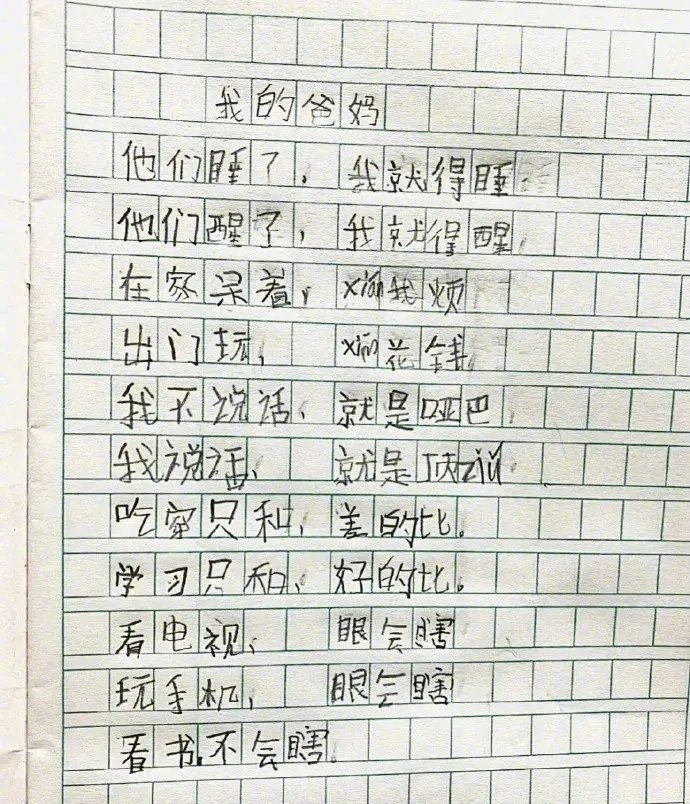 我的爸妈
他们睡了，我就得睡
他们醒了，我就得醒，
在家呆着，xián我烦
出门玩，xián花钱，
我不说话，就是哑巴，
我说话，就是顶zuǐ，
吃家只和，差的比。
学习只和，好的比。
看电视，眼会瞎
玩手机，眼会瞎
看书不会瞎。